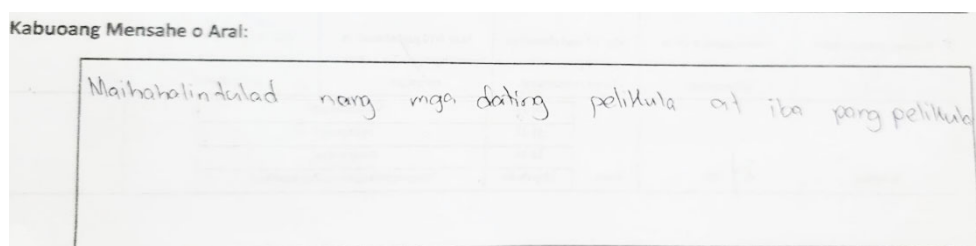 Kabuoang Mensahe o Aral:
Maihahalintulad nang mga dating pelikula at iba pang pelikula